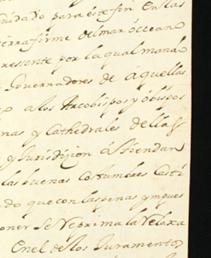 didado para este fin en las
tierra firme del mar occeano
presente por la qual mando
Governadores de aquellas
a los Arcobispos y obispos
nas y Cathedrales dellas
y Jurisdicion atiendan
las buenas costumbres casti
do que con las penas ympues
oner se reprima la
en el de los Juramentos